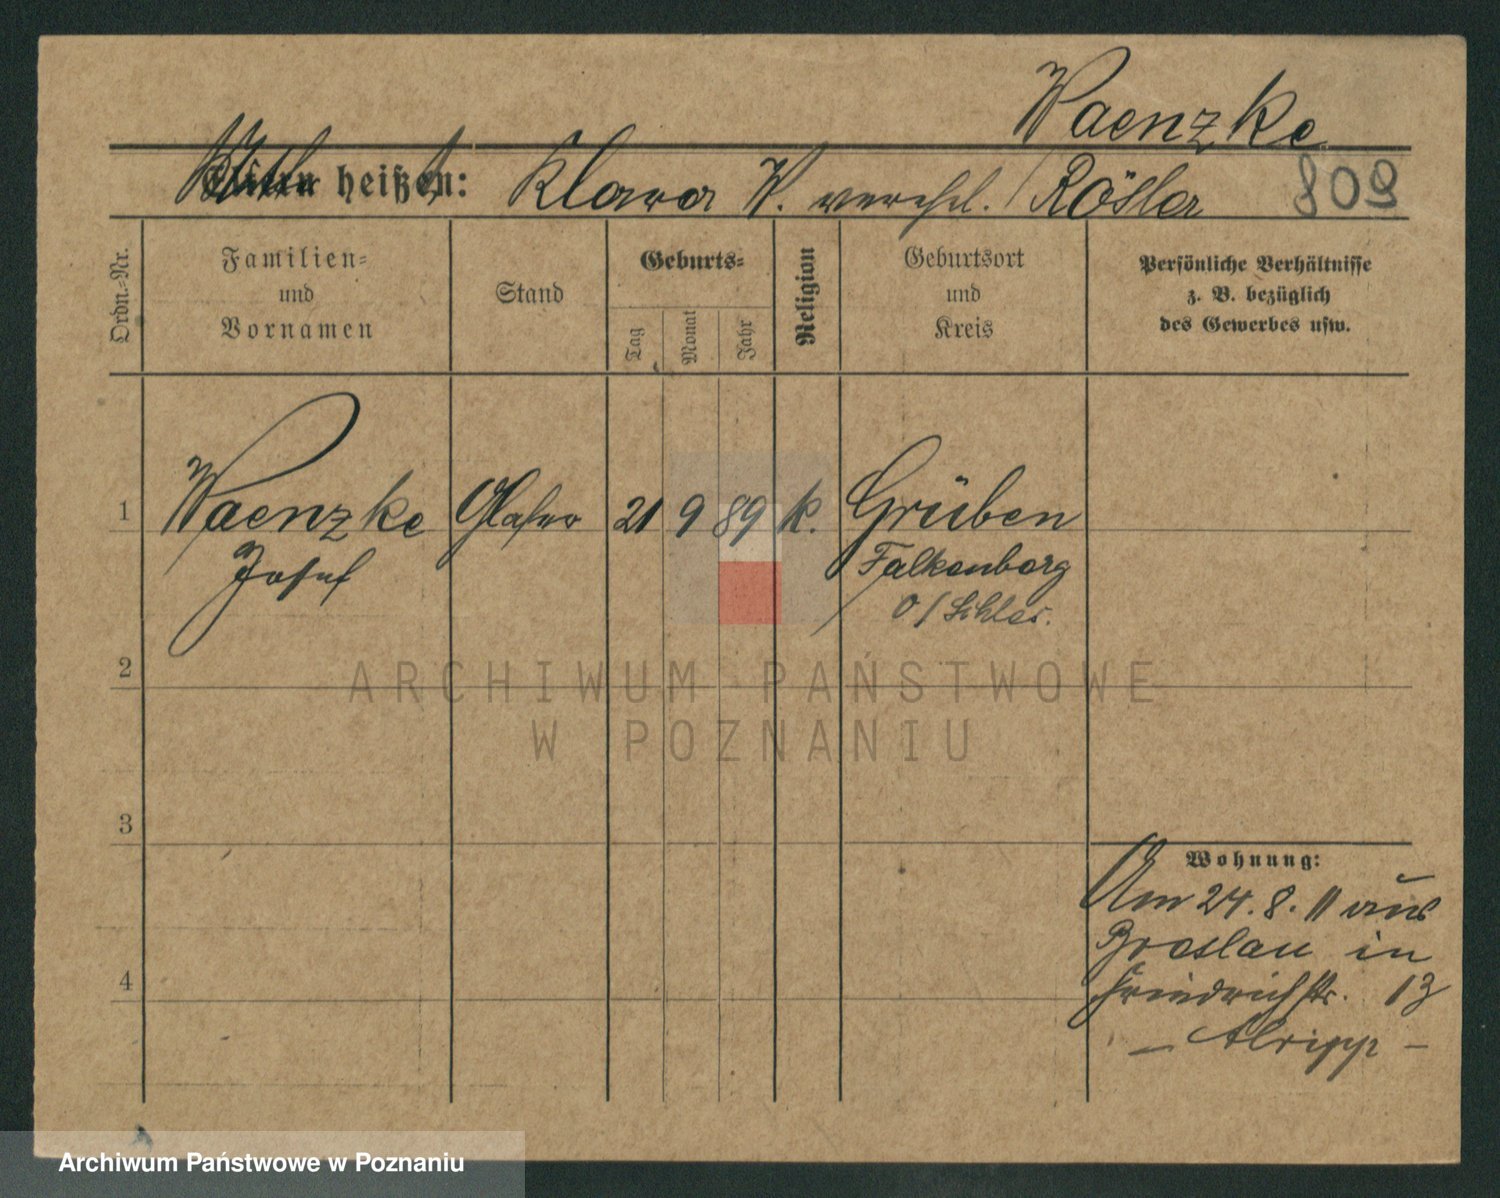 Waenzke
Eltern heißen: Klara W. verehl. Rösler 809
Ordn.-Nr.
Familien-
und
Vornamen
Stand
Geburts-
Tag
Monat
Jahr
Religion
Geburtsort
und
Kreis
Persönliche Verhältnisse
z. B. bezüglich
des Gewerbes usw.
1 Waenzke Glaser 21 9 89 k. Grüben
Josef Falkenberg
O/Schles.
2
ARCHIWUM PAŃSTWOWE
W POZNANIU
3
Wohnung:
Am 24.8.11 aus
Breslau in
Friedrichstr. 13
4
Archiwum Państwowe w Poznaniu